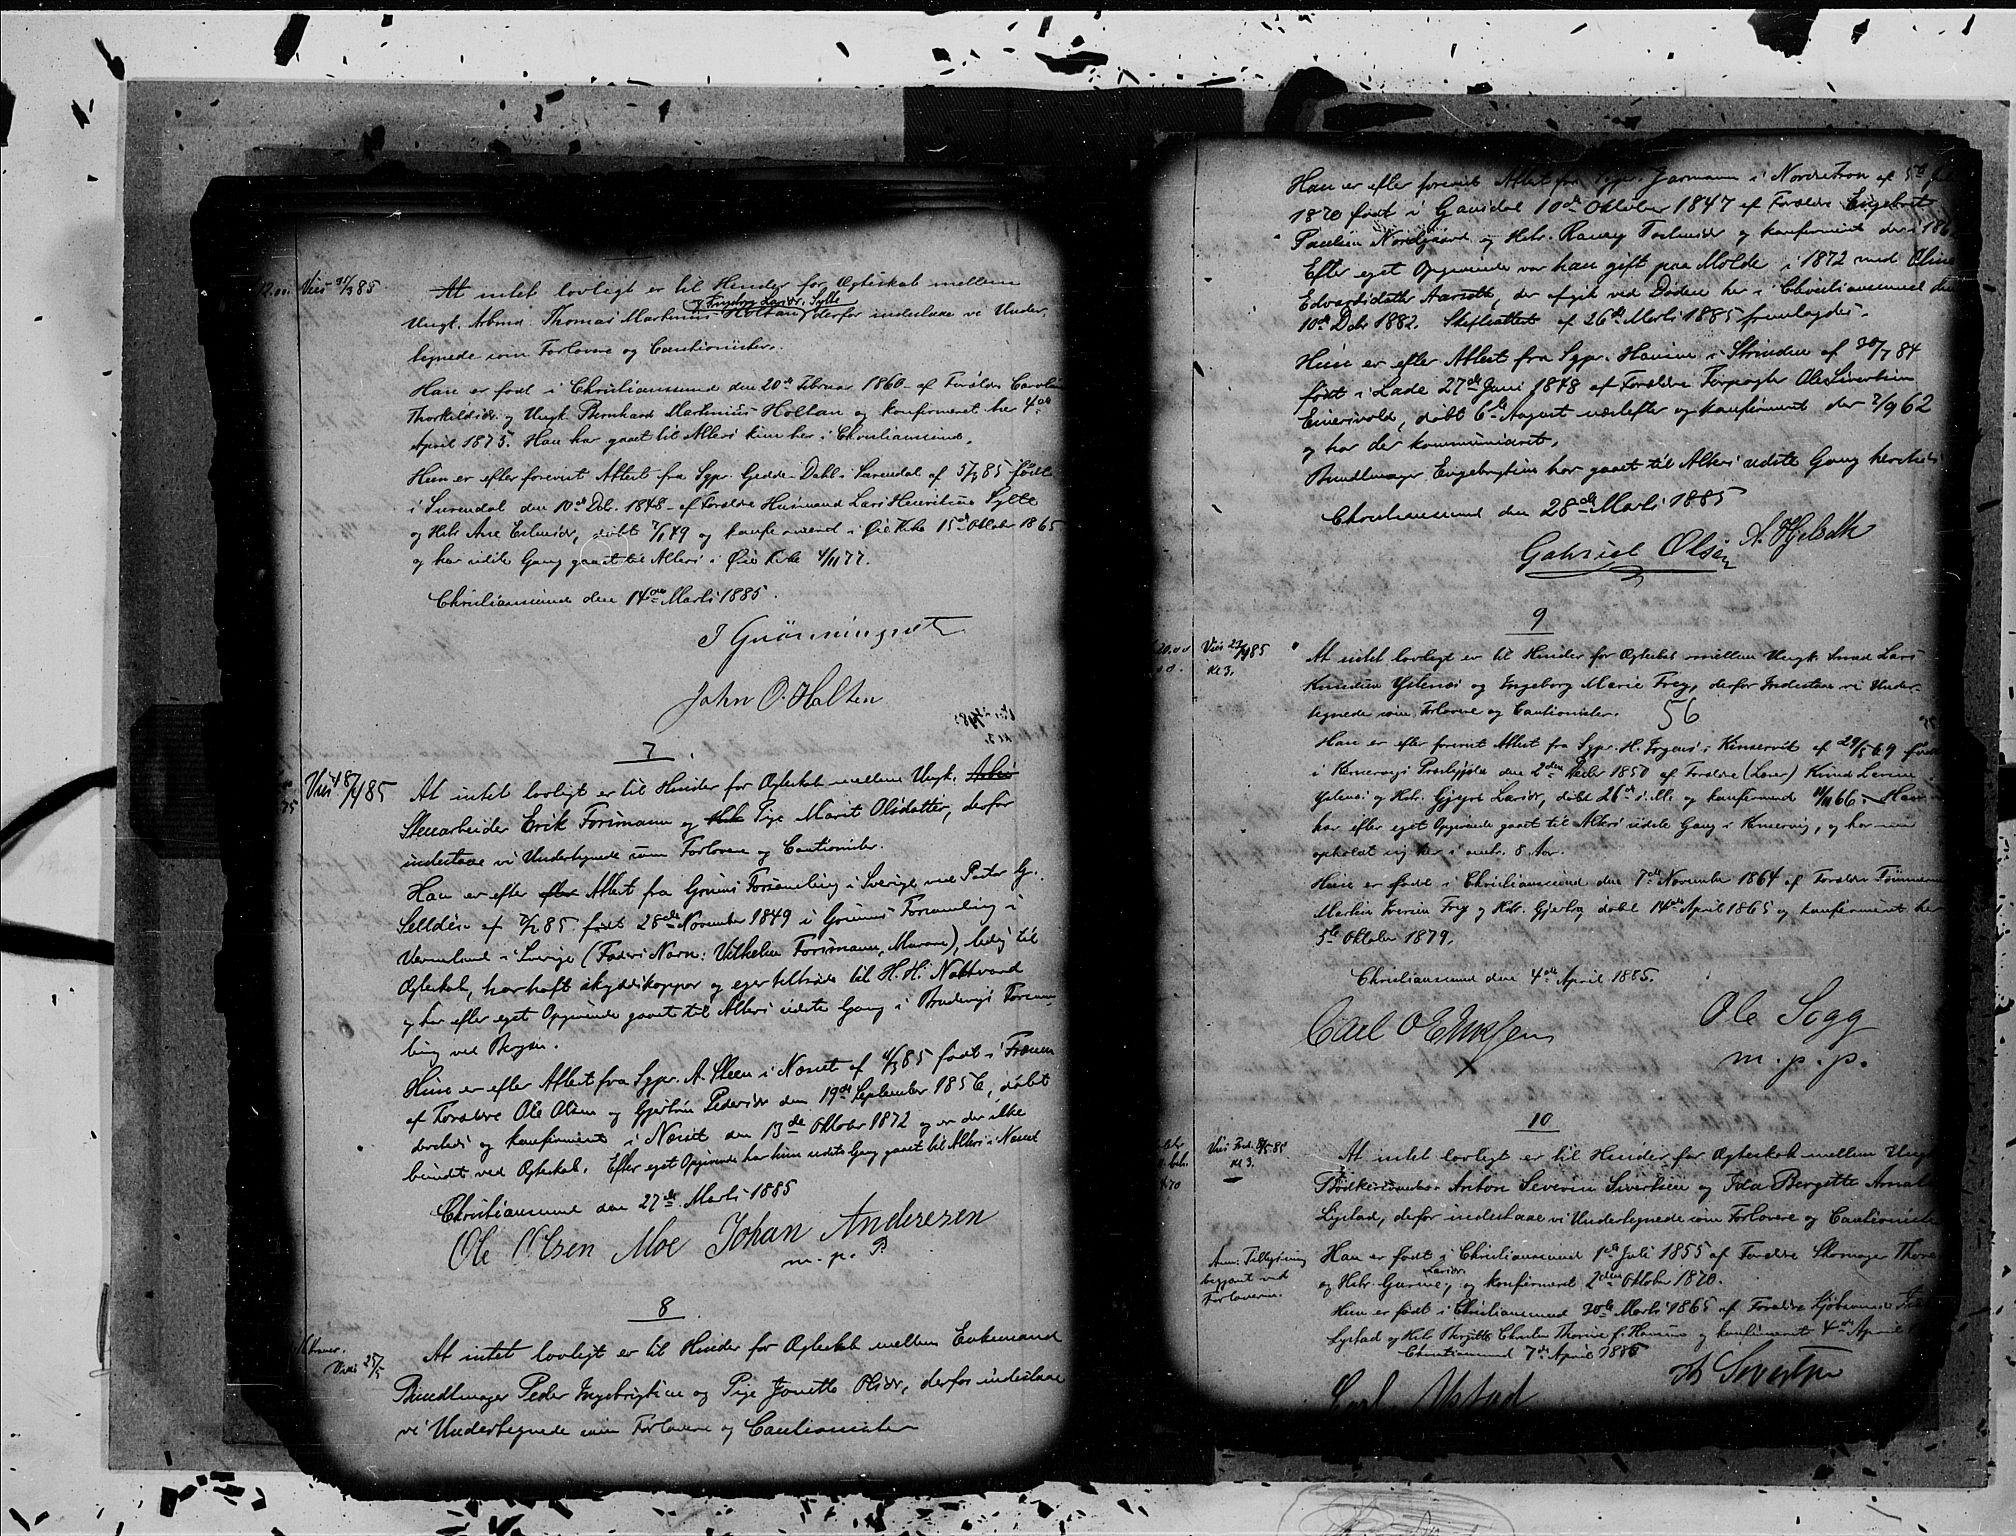 Viet 21/3 85
At intet lovligt er til Hinder for Ægteskab mellem
og Ingeborg Larsdr. Sylte
Ungk. Arbmd. Thomas Martinus Holtan, derfor indestaae vi Under-
tegnede som Forlovere og Cautionister.
Han er født i Christianssund den 20de Februar 1860 af Forældre Caroline
Thorkildsdr. og Ungk. Bernhard Martinus Holtan og konfirmeret her 4de
April 1875. Han har gaaet til Alters kun her i Christianssund.
Hun er efter foreviist Attest fra Sgpr. Gedde-Dahl i Surendal af 5/3 85 født
i Surendal den 10de Dcbr. 1848 af Forældre Husmand Lars Henriksen Sylte
og Hstr. Ane Estensdr., døbt 7/1 49 og konfirmeret i Øie Kirke 15de Oktober 1865
og har sidste Gang gaaet til Alters i Øie Kirke 4/11 77.
Christianssund den 14de Marts 1885.
J Grönningsæt
John O. Halten
7
Viet 18/4 85
At intet lovligt er til Hinder for Ægteskab mellem Ungk. Arbei
Stenarbeider Erik Forsmann og Pige Marit Olsdatter, derfor
indestaae vi Undertegnede som Forlovere og Cautionister.
Han er efter efter Attest fra Grums Forsamling i Sverige ved Pastor Gr.
Selldén af 7/2 85 født 28de November 1849 i Grums Forsamling i
Vermland i Sverige (Faders Navn: Vilhelm Forsmann, Murare), ledig til
Ægteskab, har haft skyddskoppor og eger tilträde til H. H. Nattvard
og har efter eget Opgivende gaaet til Alters sidste Gang i Forsam-
ling ved Bergen.
Hun er efter Attest fra Sgpr. A. Steen i Nesset af 4/3 85 født i Frænen
af Forældre Ole Olsen og Gjertrine Pedersdr. den 19de September 1856, døbt
dersteds og konfirmeret i Nesset den 13de Oktober 1872 og er der ikke
bundet ved Ægteskab. Efter eget Opgivende har hun sidste Gang gaaet til Alters i Nesset
Christianssund den 27de Marts 1885
Ole Olsen Moe Johan Anderesen
m. p. P.
8
Viet 25/5
At intet lovligt er til Hinder for Ægteskab mellem Enkemand
Bundtmager Peder Ingebrigtsen og Pige Jonetta Olsdr., derfor indestaae
vi Undertegnede som Forlovere og Cautionister
Han er efter foreviist Attest fra Sgpr. Jarmann i Nordre Fron af 5te
1870 født i Gausdal 10de Oktober 1847 af Forældre Engebret
Paulsen Nordgaard og Hstr. Rønnøg Torstensdr. og konfirmeret der i 186
Efter eget Opgivende var han gift paa Molde i 1872 med Oline
Edvardsdatter Aarseth, der afgik ved Døden her i Christianssund den
10de Dcbr 1882. Skifteattest af 26de Marts 1885 fremlagdes.
Hun er efter Attest fra Sgpr. Hansen i Strinden af 30/7 84
født i Lade 27de Juni 1848 af Forældre Forpagter Ole Sivertsen
døbt 6te August næstefter og konfirmeret der 7/9 62
og har der kommuniceret.
Bundtmager Engebrigtsen har gaaet til Alters sidste Gang hersteds
Christianssund den 28de Marts 1885
Gabriel Olsen A. Hjelseth
9
Viet 23/4 85
Kl 3.
At intet lovligt er til Hinder for Ægteskab mellem Ungk. Smed Lars
Knudsen Ystenes og Ingeborg Marie Frey, derfor indestaae vi Under-
tegnede som Forlovere og Cautionister.
56
Han er efter foreviist Attest fra Sgpr. H. Irgens i Kinservik af 29/5 69 født
i Kinserviks Præstegjæld den 2den Decbr 1850 af Forældre (Lærer) Knud Larsen
Ystenes og Hstr. Gjyri Larsdr., døbt 26de s. M. og konfirmeret 11/11 66. Han
har efter eget Opgivende gaaet til Alters sidste Gang i Kinservig, og har nu
opholdt sig her i omtr. 8 Aar.
Hun er født i Christianssund den 7de November 1864 af Forældre Tømmermd
Martin Iversen Frey og Hstr. Gjertrog døbt 14de April 1865 og konfirmeret her
5te Oktober 1879.
Christianssund den 4de April 1885.
Ole Sogg
m. p. p.
10
Kl 3.
At intet lovligt er til Hinder for Ægteskab mellem Ungk.
Bødkersvend Anton Severin Sivertsen og Bergitte Amalie
Lystad, derfor indestaae vi Undertegnede som Forlovere og Cautionister
Anm. Tillysning
besørget ved
Forloverne.
Han er født i Christianssund 1ste Juli 1855 af Forældre Skomager Thore
Larsdr.
og Hstr. Gurine, og konfirmeret 2den Oktober 1870.
Hun er født i Christianssund 20de Marts 1865 af Forældre
Lystad og Hstr Bergitte Thorine f. Hansen og konfirmeret 4de April
Christianssund 7de April 1885